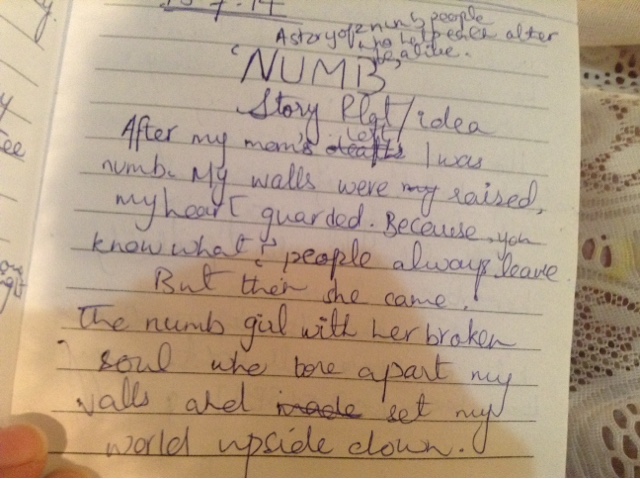 13-7-14
A story of 2 numb people
who help each other
be alive.
'NUMB'
Story Plot/idea
After my mom's deaths left I was
numb. My walls were my raised,
my heart guarded. Because, you
know what? people always leave.
But then she came.
The numb girl with her broken
soul who tore apart my
walls and made set my
world upside down.